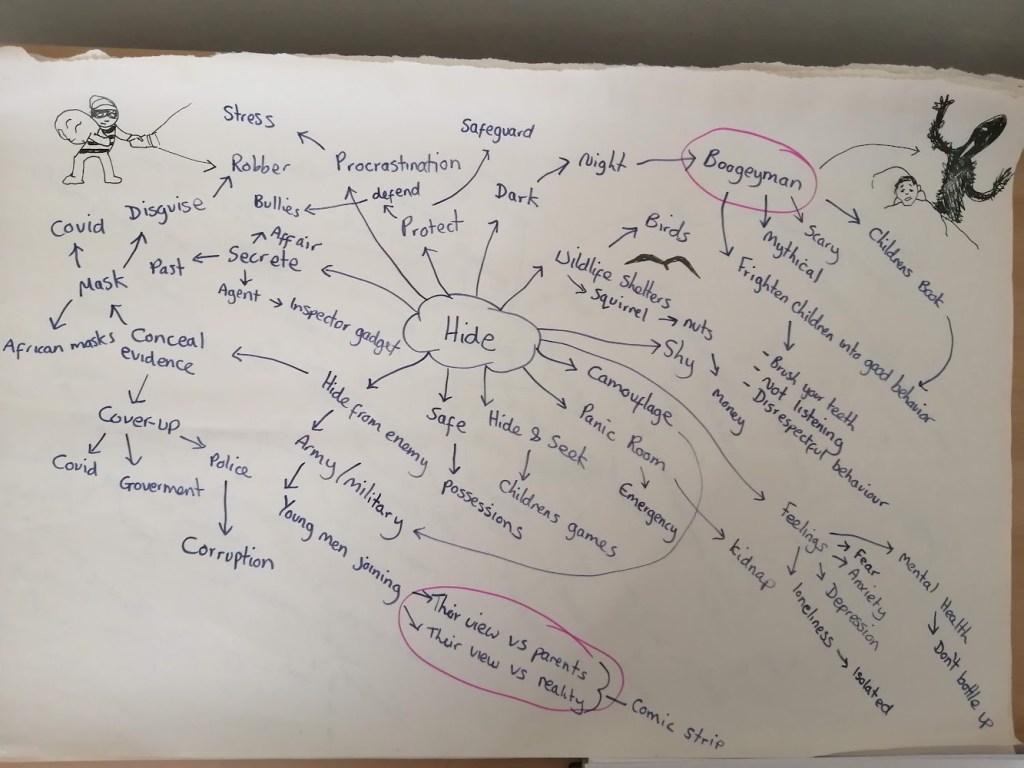 Hide
Stress
Procrastination
Robber
Disguise
Covid
Mask
African masks
Conceal
evidence
Cover-up
Covid
Goverment
Police
Corruption
Past
Secrete
Affair
Agent
Inspector gadget
Bullies
defend
Protect
Safeguard
Dark
Night
Boogeyman
Scary
Mythical
Childrens Book
Frighten children into good behavior
- Brush your teeth
- Not listening
- Disrespectful behaviour
Wildlife shelters
Birds
Squirrel
nuts
money
Shy
Camouflage
Panic Room
Emergency
kidnap
Feelings
Fear
Anxiety
Depression
loneliness
Isolated
mental Health
Don't bottle up
Hide & Seek
Childrens games
Safe
possessions
Hide from enemy
Army/military
Young men joining
Their view vs parents
Their view vs reality
Comic strip